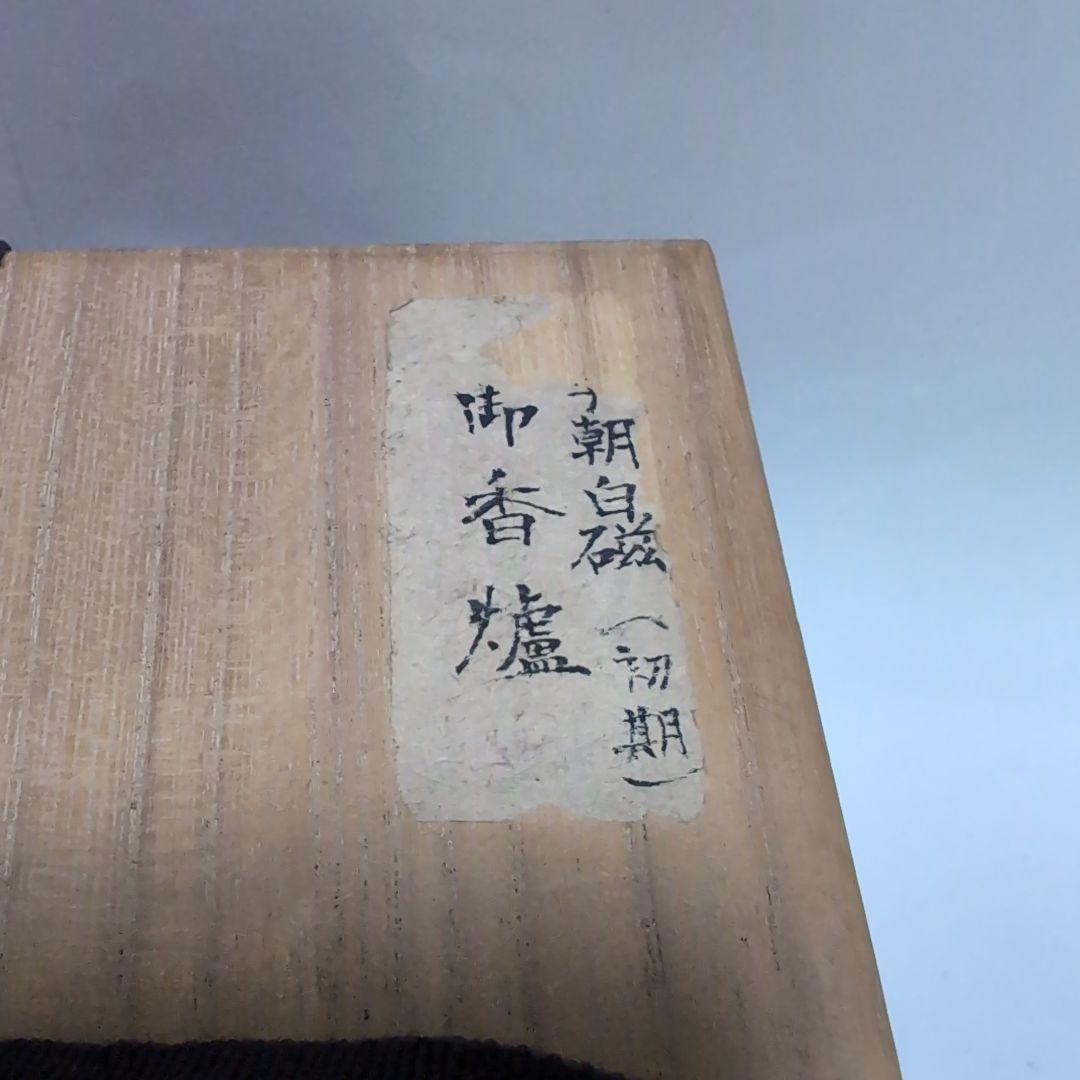 朝白磁(初期)
御香爐